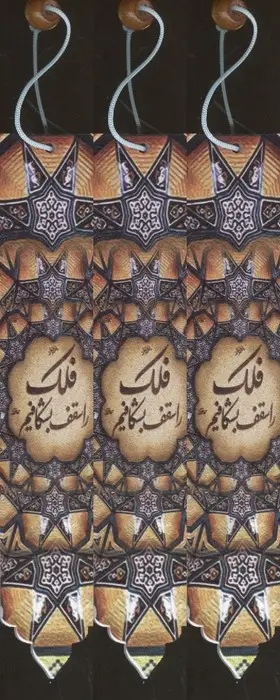 فلک
را سقف بشکافیم
فلک
را سقف بشکافیم
فلک
را سقف بشکافیم